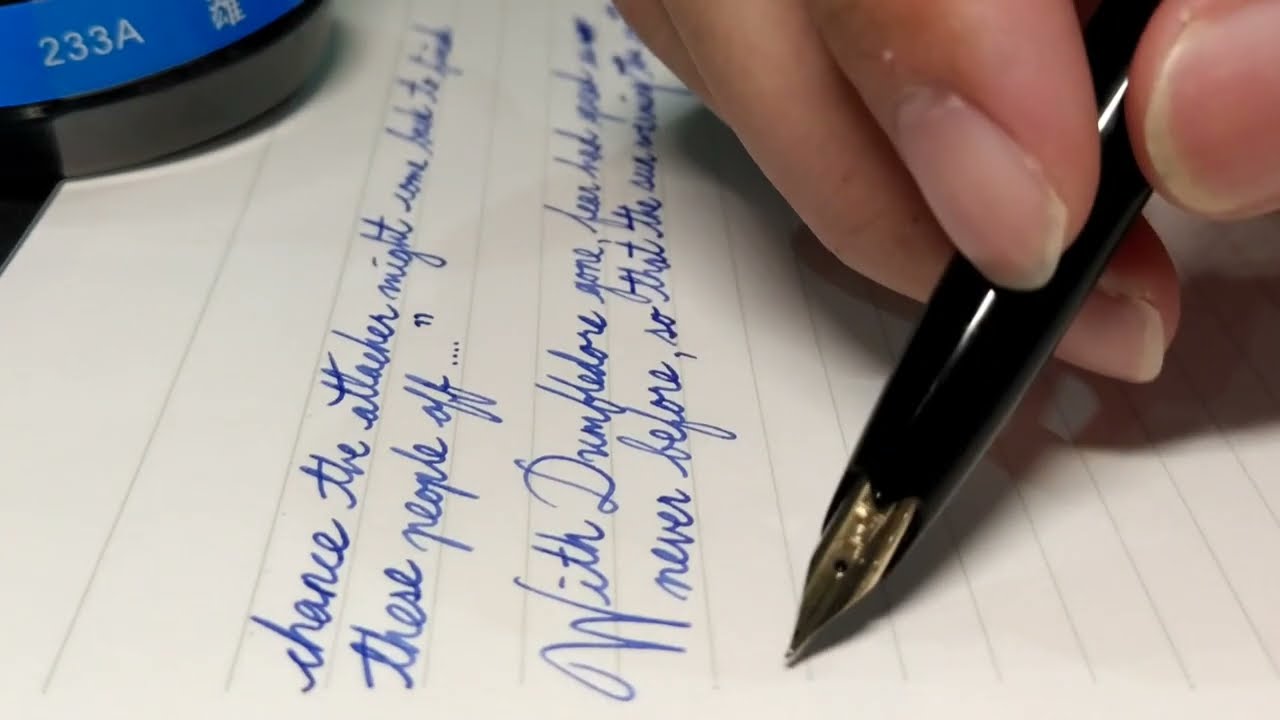 233A 雄
chance the attacker might come back to
these people off ...."
With Dumbledore gone, fear had spread as
never before, so that the sun warming the